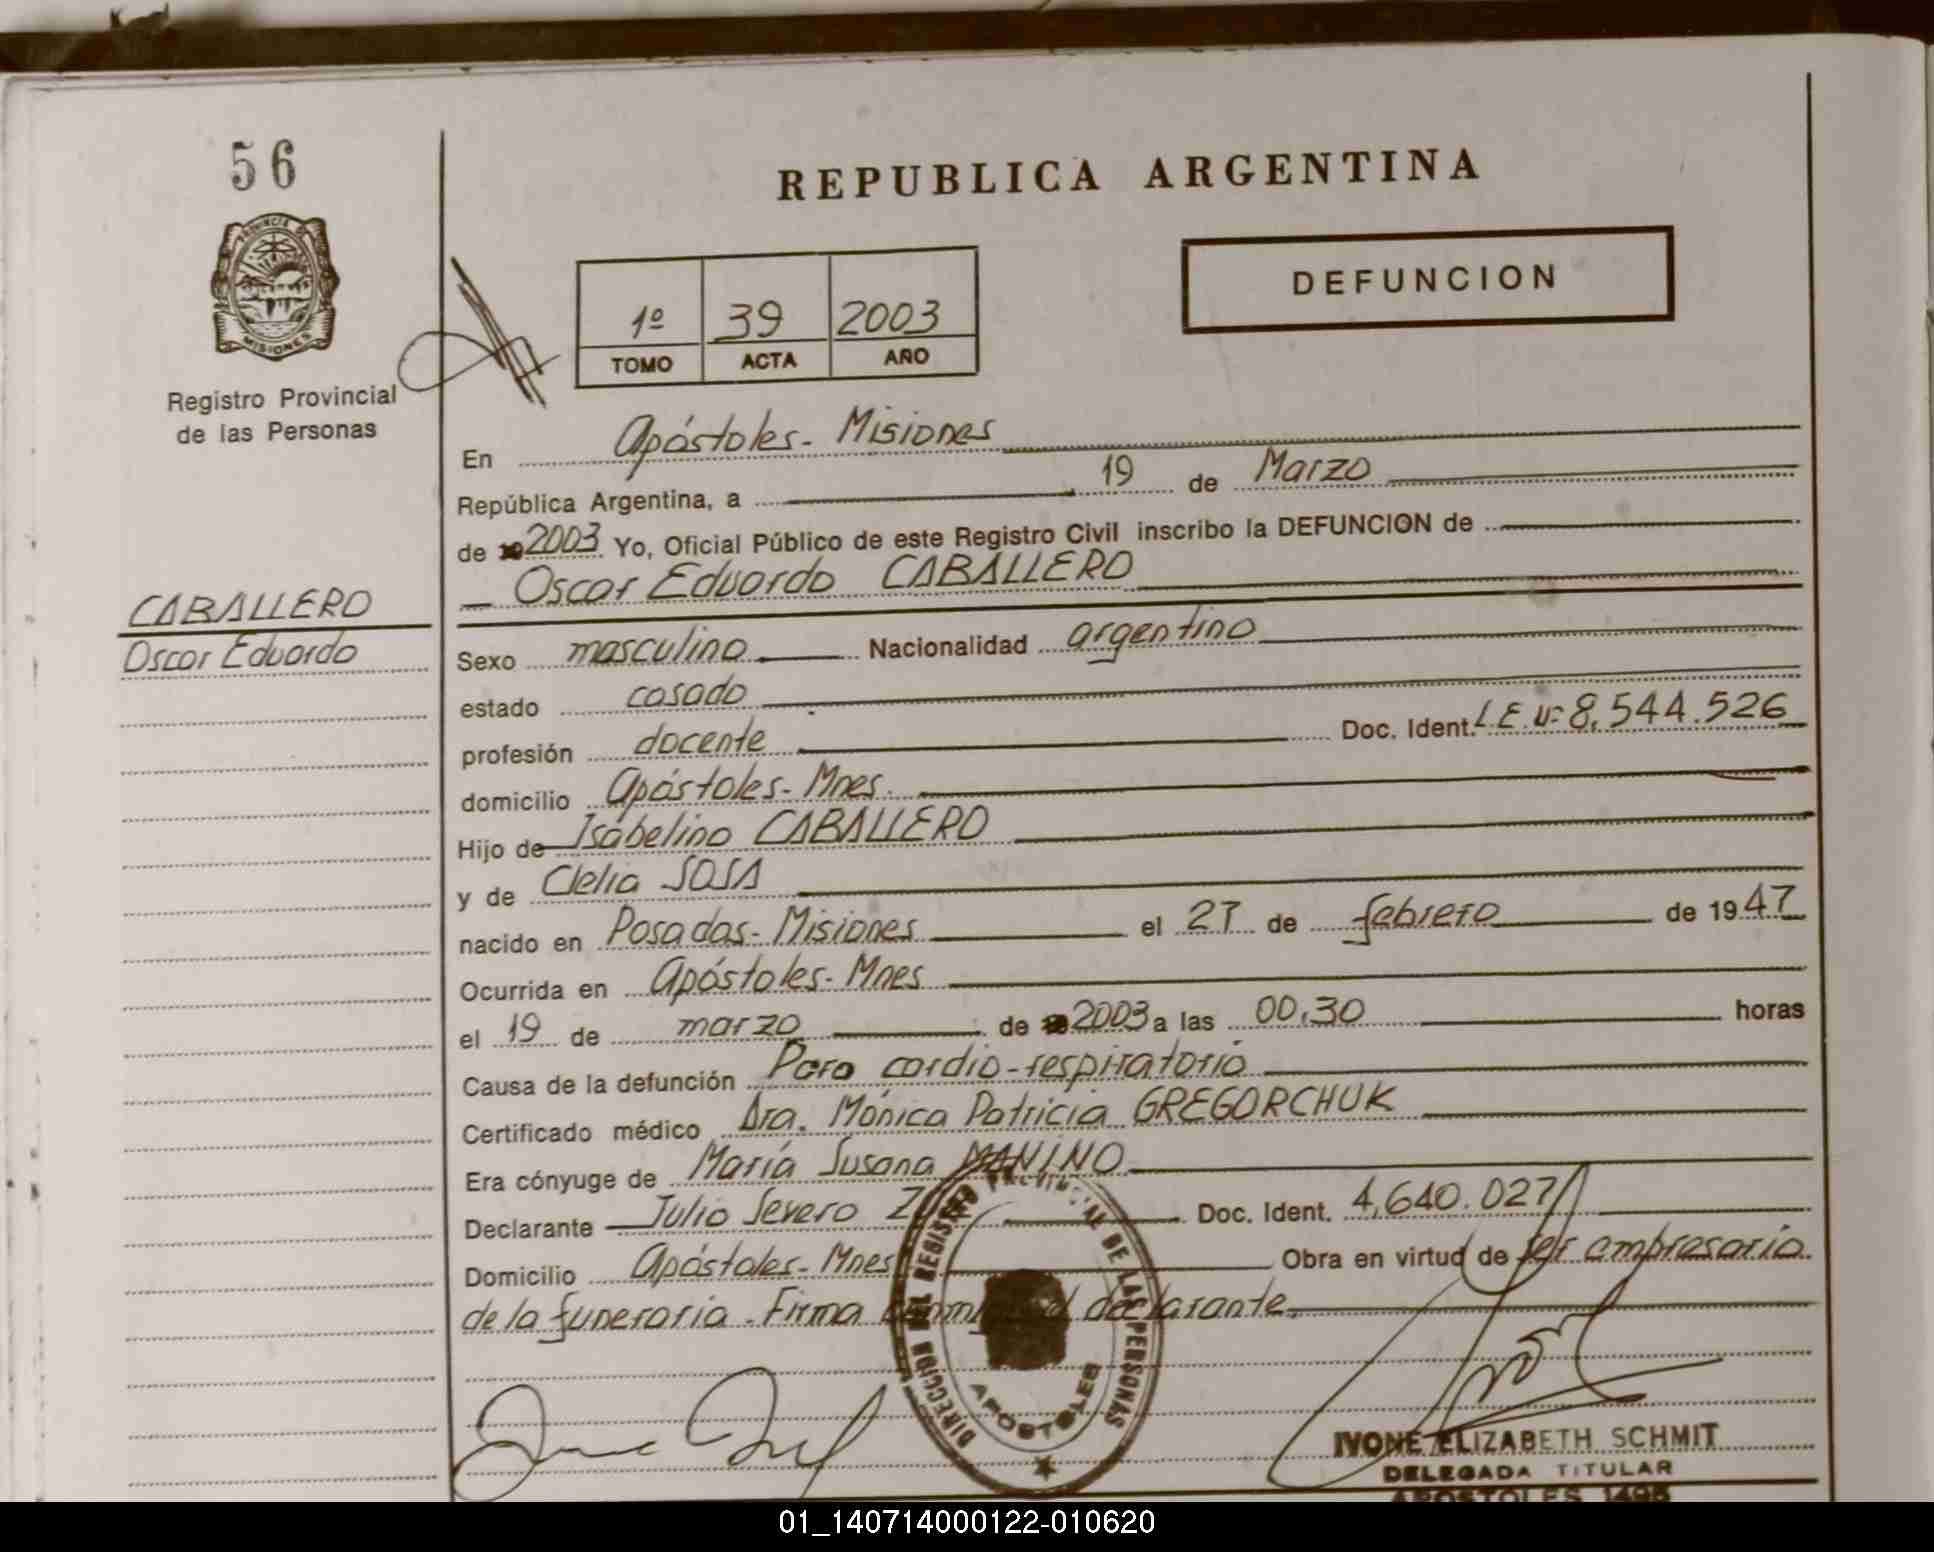 56
REPUBLICA ARGENTINA
PROVINCIA DE
MISIONES
Registro Provincial
de las Personas
1º 39 2003
TOMO ACTA AÑO
DEFUNCION
En Apóstoles - Misiones
República Argentina, a 19 de Marzo
de 2003 Yo, Oficial Público de este Registro Civil inscribo la DEFUNCION de
Oscar Eduardo CABALLERO
CABALLERO
Oscar Eduardo
Sexo masculino Nacionalidad argentino
estado casado
profesión docente Doc. Ident. L.E. Nº 8,544.526
domicilio Apóstoles - Mnes.
Hijo de Isabelino CABALLERO
y de Clelia SOSA
nacido en Posadas - Misiones el 27 de febrero de 1947
Ocurrida en Apóstoles - Mnes
el 19 de marzo de 2003 a las 00,30 horas
Causa de la defunción Paro cardio-respiratorio
Certificado médico Dra. Mónica Patricia GREGORCHUK
Era cónyuge de María Susana MANINO
Declarante Julio Severo Doc. Ident. 4,640.027
Domicilio Apóstoles - Mnes Obra en virtud de ser empresario
de la funeraria. Firma el declarante.
DIRECCION DEL REGISTRO PROVINCIAL DE LAS PERSONAS
APOSTOLES
IVONE ELIZABETH SCHMIT
DELEGADA TITULAR
APOSTOLES 1495
01_140714000122-010620